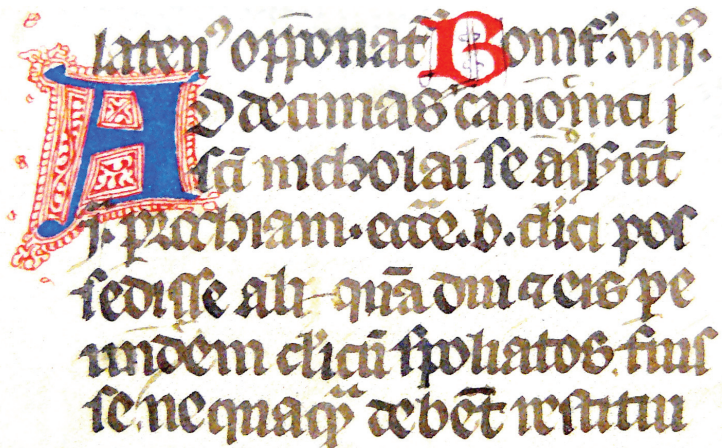 laten⁹ opponat᷑ Bonif. viij.
AD decimas canonici i
sci nicholai se asserūt
f. ꝑrochiam. ecce. b. clici pos
sedisse ali quā diu ⁊ eis pe
undem clicū spoliatos fuis
se. nequaqȝ debēt restitui